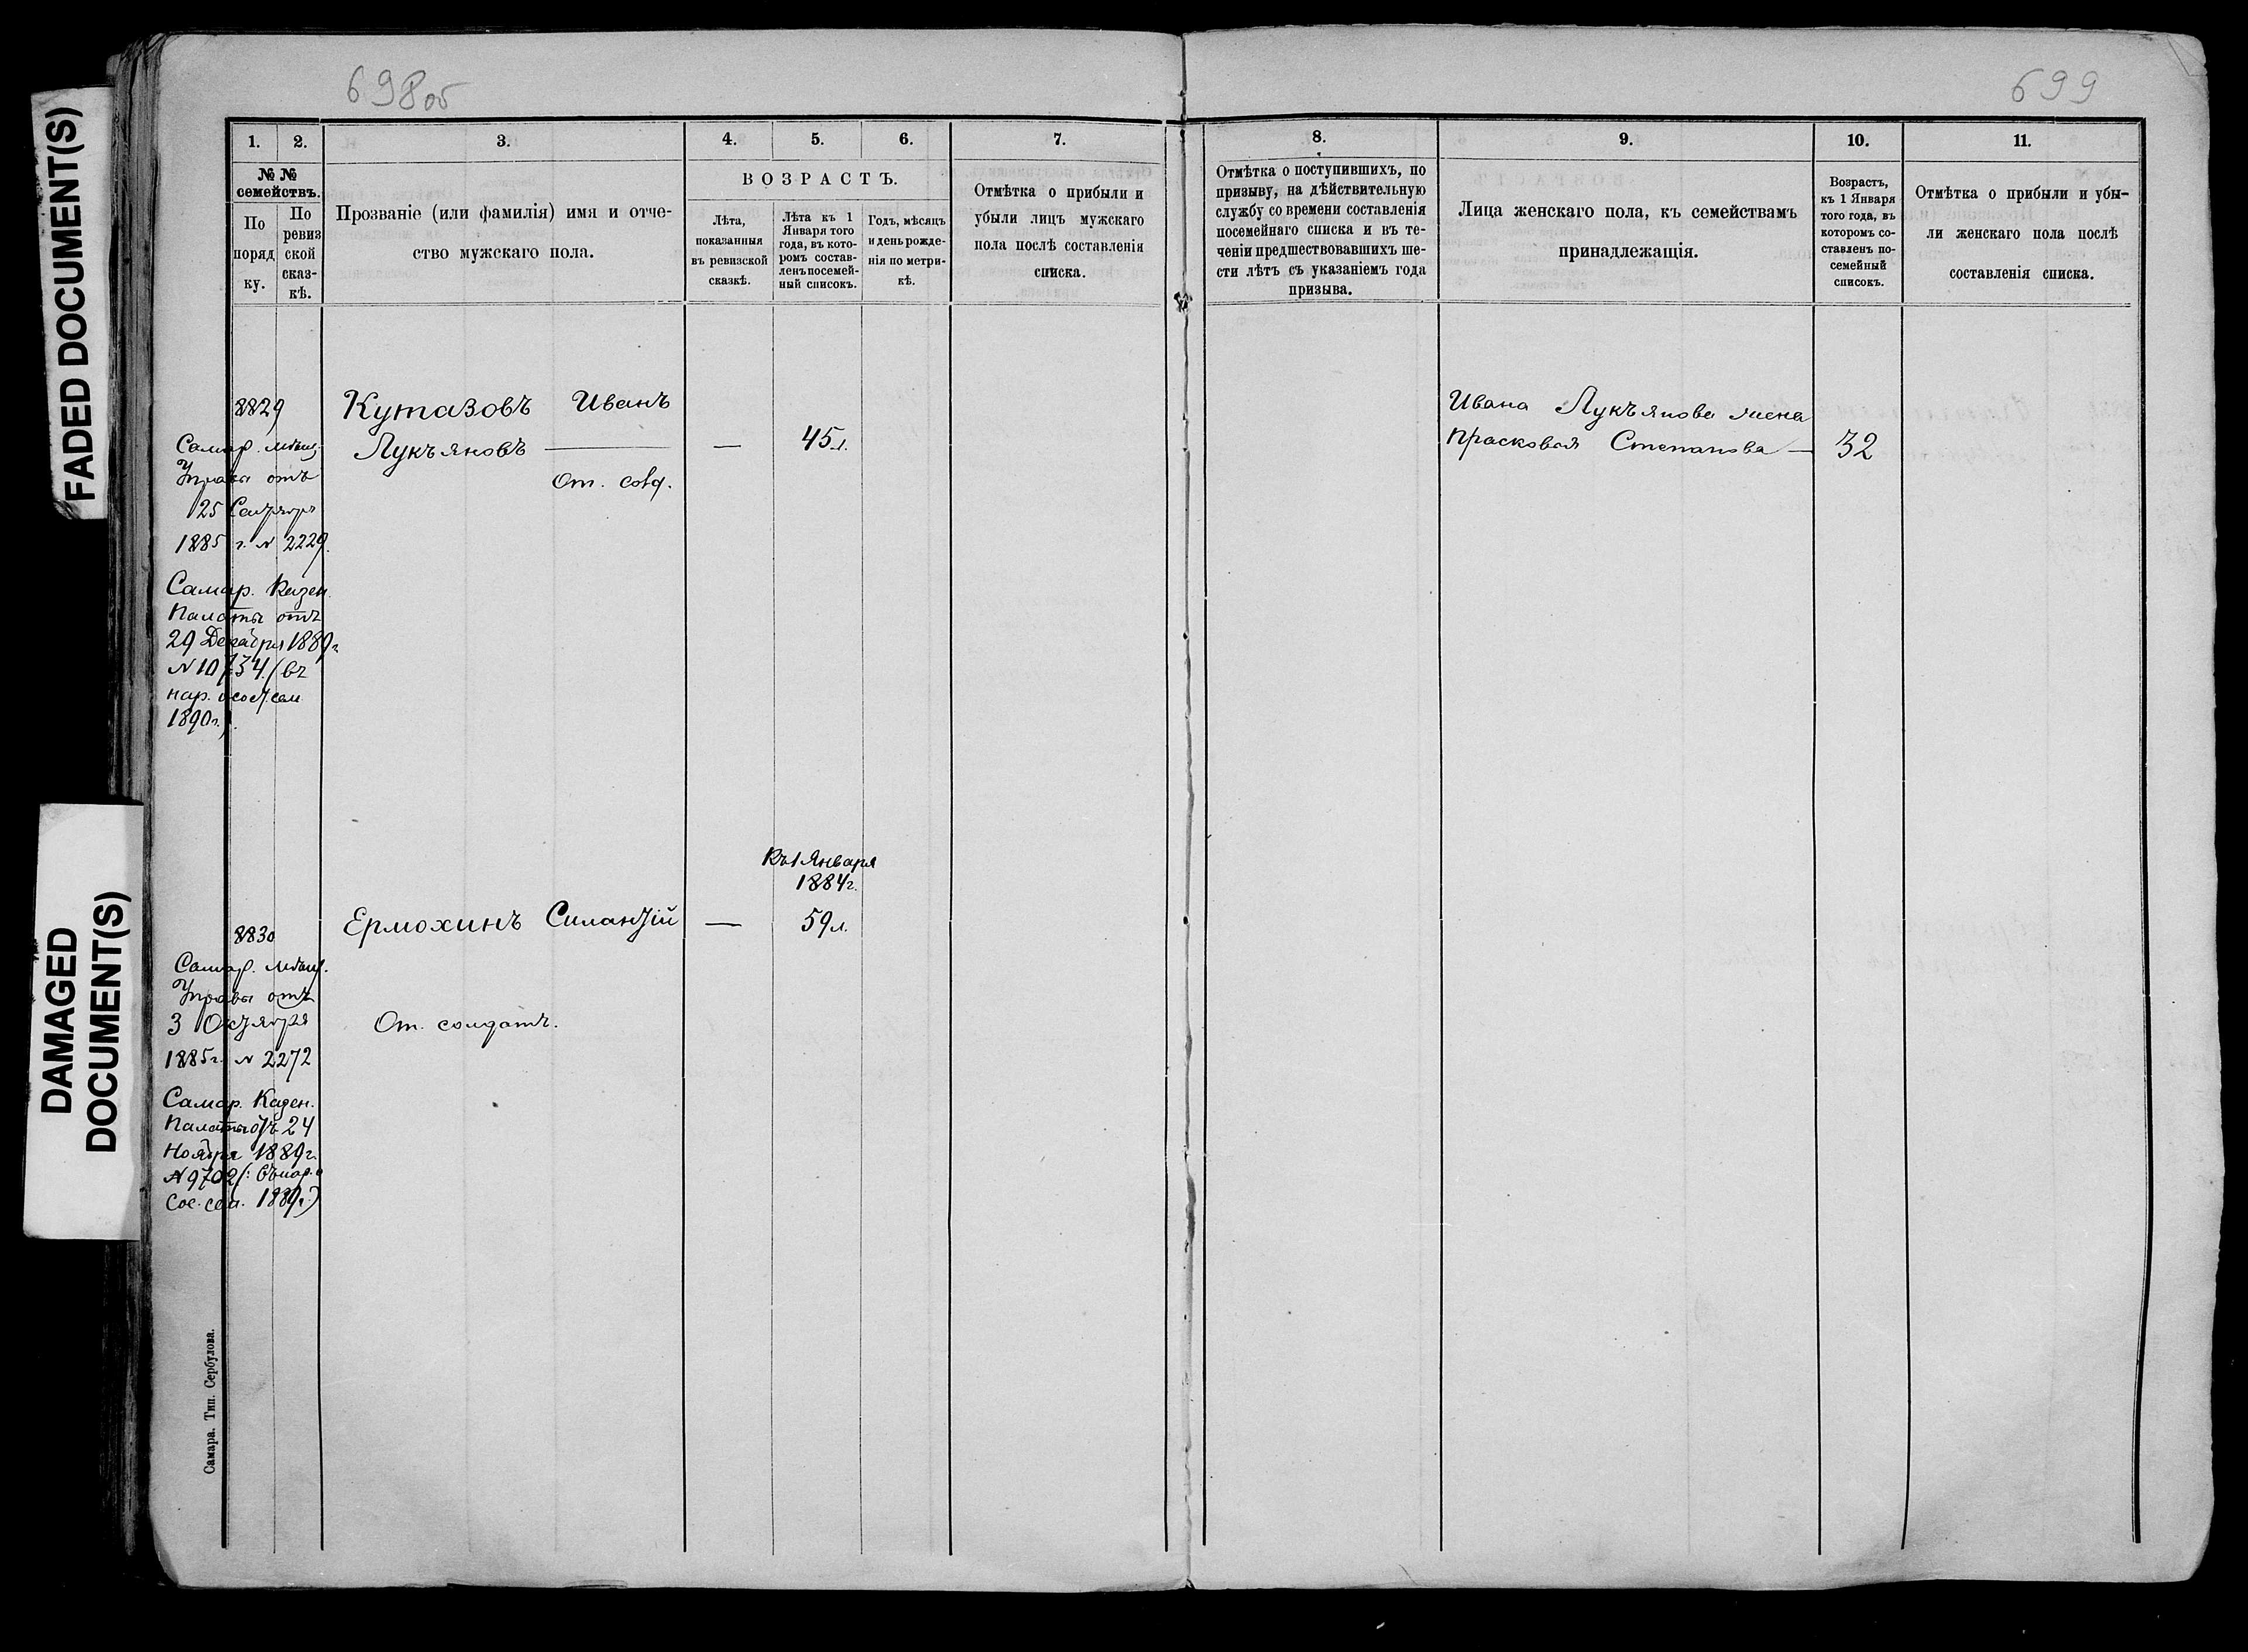 FADED DOCUMENT(S)
DAMAGED
DOCUMENT(S)
698об
699
1.
2.
3.
4.
5.
6.
7.
8.
9.
10.
11.
№ №
семействъ.
По
поряд
ку.
По
ревиз
ской
сказ-
кѣ.
Прозваніе (или фамилія) имя и отче-
ство мужскаго пола.
ВОЗРАСТЪ.
Лѣта,
показанныя
въ ревизской
сказкѣ.
Лѣта къ 1
Января того
года, въ кото-
ромъ состав-
ленъ посемей-
ный списокъ.
Годъ, мѣсяцъ
и день рожде-
нія по метри-
кѣ.
Отмѣтка о прибыли и
убыли лицъ мужскаго
пола послѣ составленія
списка.
Отмѣтка о поступившихъ, по
призыву, на дѣйствительную
службу со времени составленія
посемейнаго списка и въ те-
ченіи предшествовавшихъ ше-
сти лѣтъ съ указаніемъ года
призыва.
Лица женскаго пола, къ семействамъ
принадлежащія.
Возрастъ,
къ 1 Января
того года, въ
которомъ со-
ставленъ по-
семейный
списокъ.
Отмѣтка о прибыли и убы-
ли женскаго пола послѣ
составленія списка.
8829
Кутазовъ Иванъ
Лукъяновъ — — 45 л.
От. солд.
Ивана Лукъянова жена
Прасковья Степанова — 32
Самар. Мѣщ.
Управы отъ
25 Сентября
1885 г. № 2229.
Самар. Казен.
Палаты отъ
29 Декабря 1889 г
№ 10734. (въ
нар. о сост. сем.
1890 г.).
Къ 1 Января
1884 г.
8830
Ермохинъ Силантій — 59 л.
Самар. Мѣщ.
Управы отъ
3 Октября
1885 г. № 2272
От. солдатъ.
Самар. Казен.
Палаты отъ 24
Ноября 1889 г.
№ 9702 (: въ нар. о
сос. сем. 1889 г.)
Самара. Тип. Сербулова.